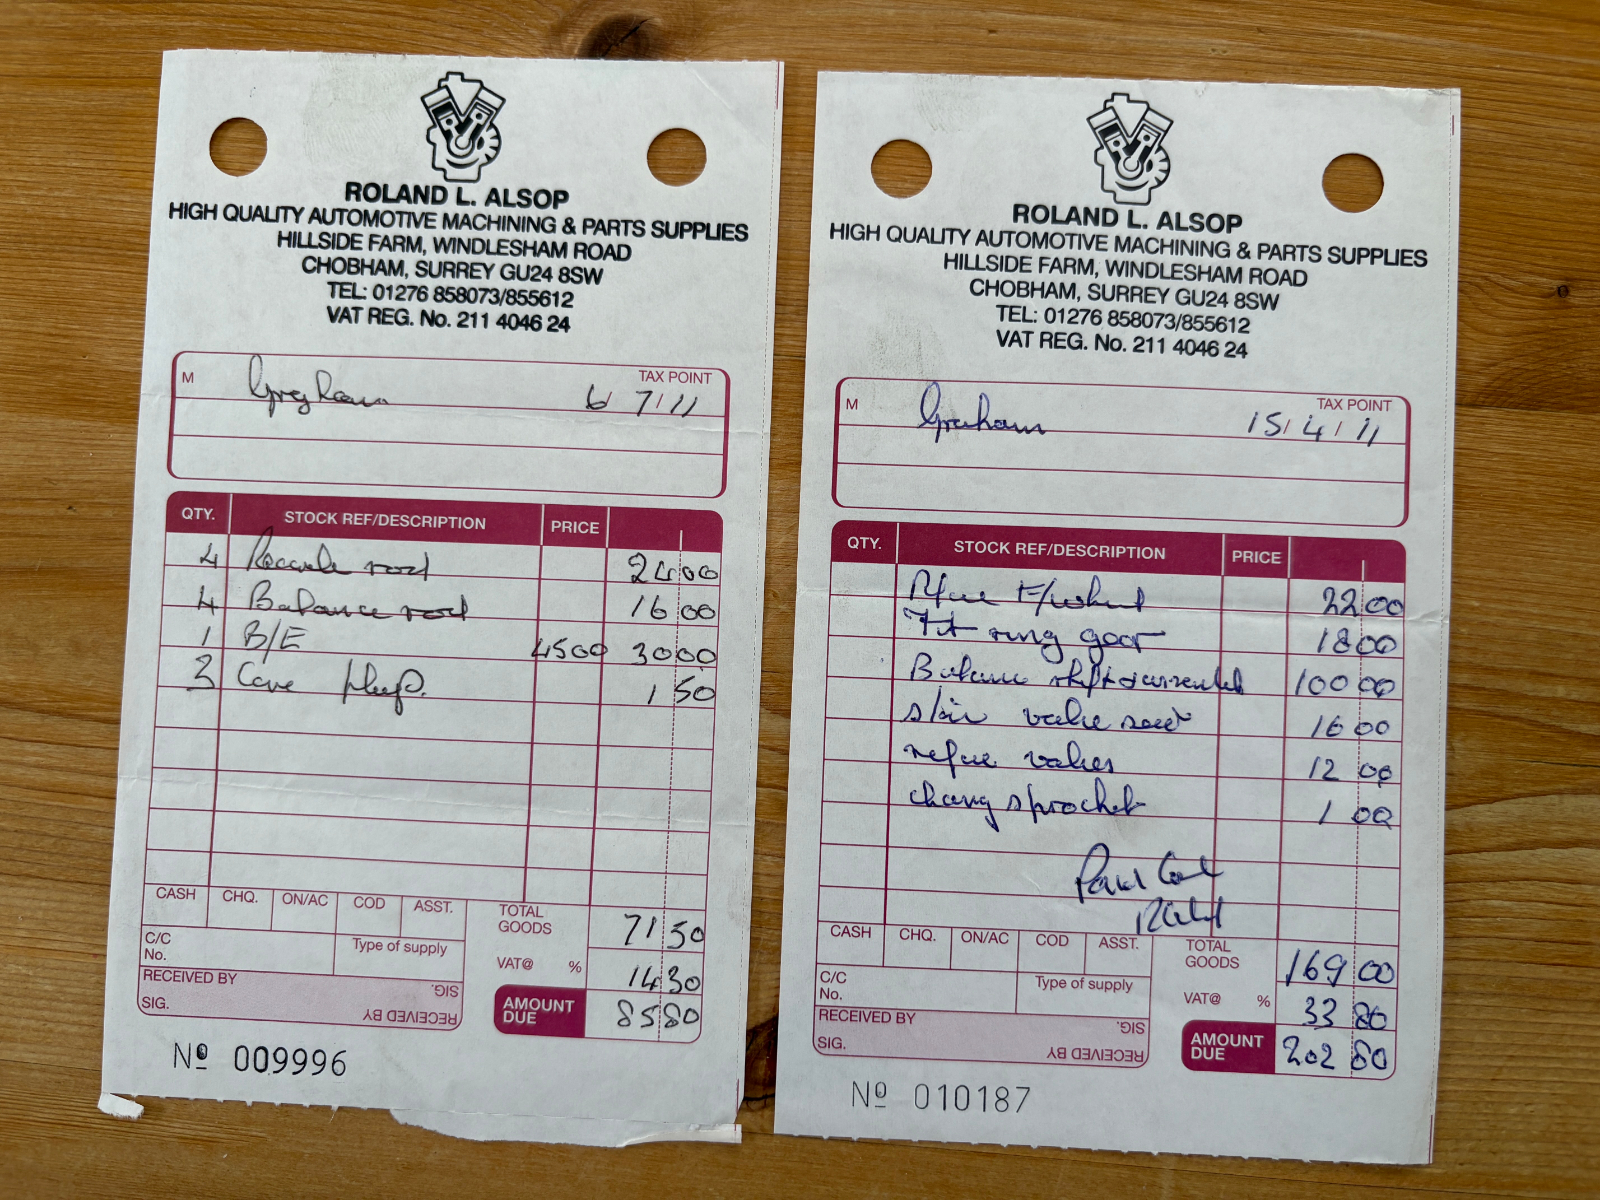 ROLAND L. ALSOP
HIGH QUALITY AUTOMOTIVE MACHINING & PARTS SUPPLIES
HILLSIDE FARM, WINDLESHAM ROAD
CHOBHAM, SURREY GU24 8SW
TEL: 01276 858073/855612
VAT REG. No. 211 4046 24
M TAX POINT
6/ 7/11
QTY. STOCK REF/DESCRIPTION PRICE
4 rod 24 00
4 Balance rod 16 00
1 B/E 4500 30 00
3 Core plugs. 1 50
CASH CHQ. ON/AC COD ASST. TOTAL GOODS 71 50
C/C No. Type of supply
VAT@ % 14 30
RECEIVED BY SIG.
SIG. RECEIVED BY
AMOUNT DUE 85 80
Nº 009996
ROLAND L. ALSOP
HIGH QUALITY AUTOMOTIVE MACHINING & PARTS SUPPLIES
HILLSIDE FARM, WINDLESHAM ROAD
CHOBHAM, SURREY GU24 8SW
TEL: 01276 858073/855612
VAT REG. No. 211 4046 24
M TAX POINT
Graham 15/ 4/ 11
QTY. STOCK REF/DESCRIPTION PRICE
F/wheel 22 00
Fit ring gear 18 00
Balance 100 00
valve seat 16 00
reface valves 12 00
sprocket 1 00
CASH CHQ. ON/AC COD ASST. TOTAL GOODS 169 00
C/C No. Type of supply
VAT@ % 33 80
RECEIVED BY SIG.
SIG. RECEIVED BY
AMOUNT DUE 202 80
Nº 010187